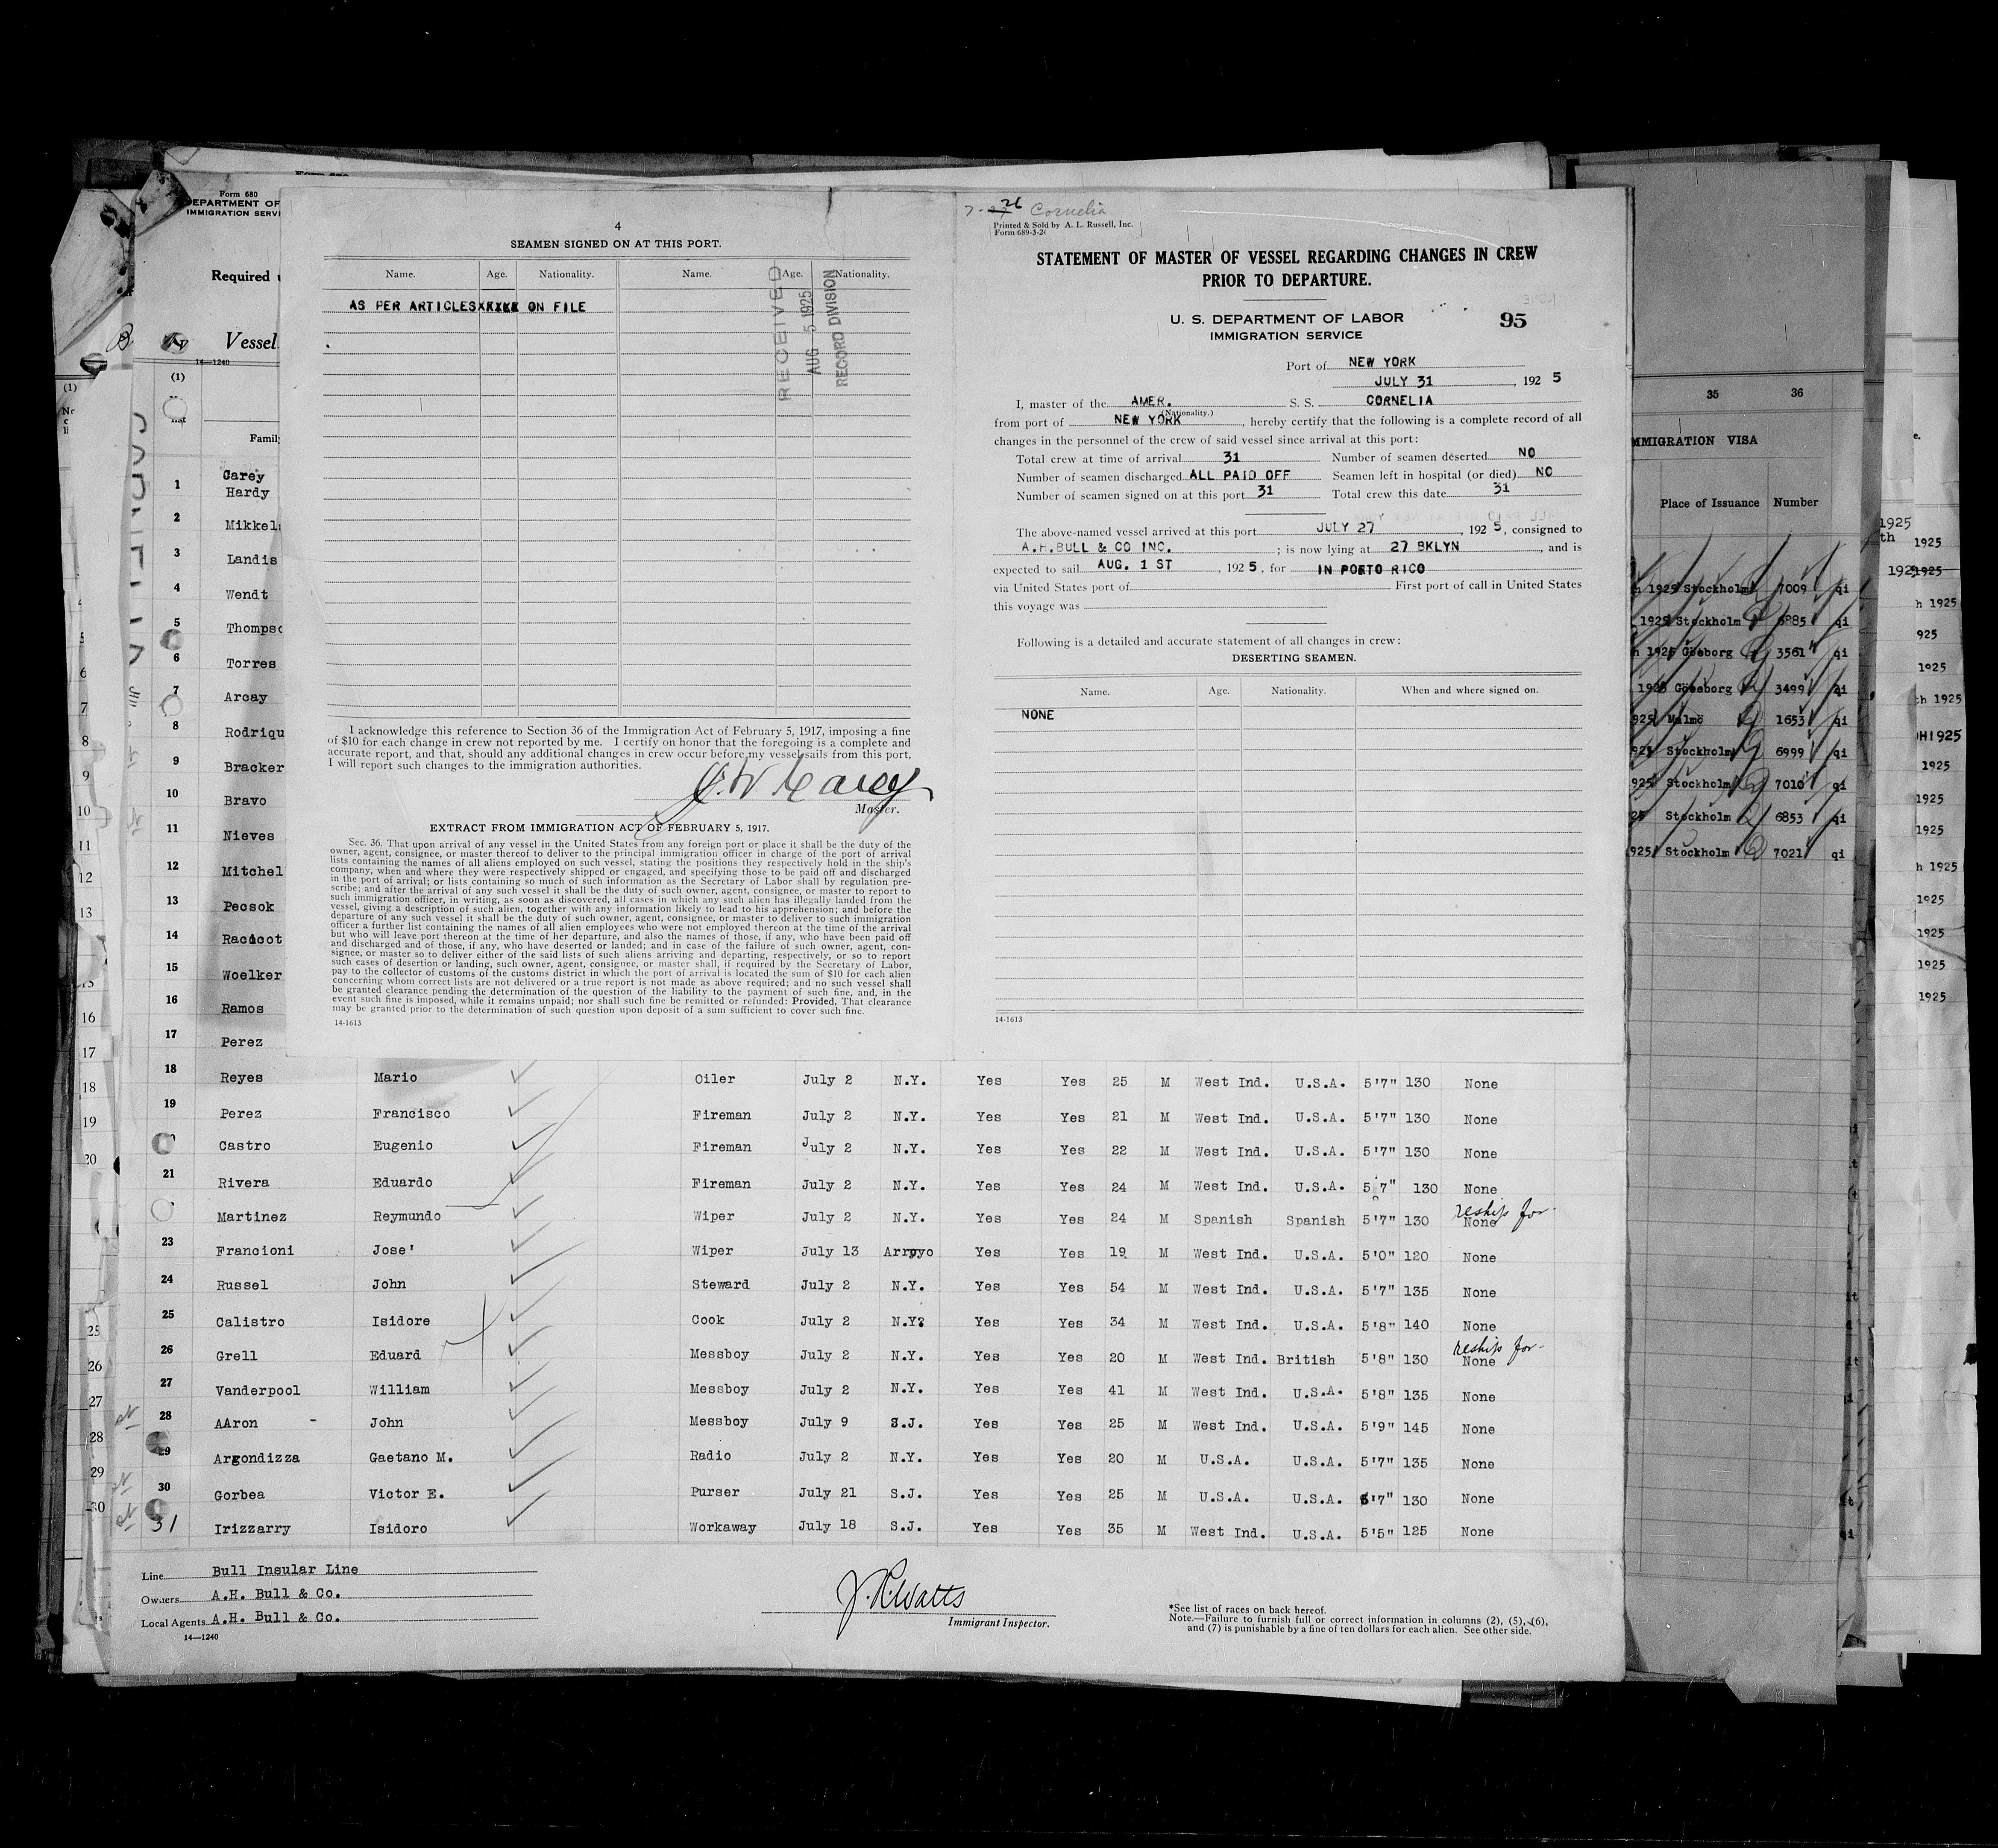 Form 680
DEPARTMENT OF
IMMIGRATION SERVI
Required
Vessel
14—1240
(1)
list
Famil
1 Carey
Hardy
2 Mikkel
3 Landis
4 Wendt
5 Thompso
6 Torres
7 Arcay
8 Rodriqu
9 Bracker
10 Bravo
11 Nieves
12 Mitchel
13 Pecsok
14 Racicot
15 Woelker
16 Ramos
17 Perez
4
SEAMEN SIGNED ON AT THIS PORT.
Name. Age. Nationality. Name. Age. Nationality.
AS PER ARTICLESXXXXX ON FILE
RECEIVED
AUG 5 1925
RECORD DIVISION
I acknowledge this reference to Section 36 of the Immigration Act of February 5, 1917, imposing a fine
of $10 for each change in crew not reported by me. I certify on honor that the foregoing is a complete and
accurate report, and that, should any additional changes in crew occur before my vessel sails from this port,
I will report such changes to the immigration authorities.
J. W Carey
Master.
EXTRACT FROM IMMIGRATION ACT OF FEBRUARY 5, 1917.
Sec. 36. That upon arrival of any vessel in the United States from any foreign port or place it shall be the duty of the
owner, agent, consignee, or master thereof to deliver to the principal immigration officer in charge of the port of arrival
lists containing the names of all aliens employed on such vessel, stating the positions they respectively hold in the ship's
company, when and where they were respectively shipped or engaged, and specifying those to be paid off and discharged
in the port of arrival; or lists containing so much of such information as the Secretary of Labor shall by regulation pre-
scribe; and after the arrival of any such vessel it shall be the duty of such owner, agent, consignee, or master to report to
such immigration officer, in writing, as soon as discovered, all cases in which any such alien has illegally landed from the
vessel, giving a description of such alien, together with any information likely to lead to his apprehension; and before the
departure of any such vessel it shall be the duty of such owner, agent, consignee, or master to deliver to such immigration
officer a further list containing the names of all alien employees who were not employed thereon at the time of the arrival
but who will leave port thereon at the time of her departure, and also the names of those, if any, who have been paid off
and discharged and of those, if any, who have deserted or landed; and in case of the failure of such owner, agent, con-
signee, or master so to deliver either of the said lists of such aliens arriving and departing, respectively, or so to report
such cases of desertion or landing, such owner, agent, consignee, or master shall, if required by the Secretary of Labor,
pay to the collector of customs of the customs district in which the port of arrival is located the sum of $10 for each alien
concerning whom correct lists are not delivered or a true report is not made as above required; and no such vessel shall
be granted clearance pending the determination of the question of the liability to the payment of such fine, and, in the
event such fine is imposed, while it remains unpaid; nor shall such fine be remitted or refunded: Provided, That clearance
may be granted prior to the determination of such question upon deposit of a sum sufficient to cover such fine.
14-1613
26 Cornelia
Printed & Sold by A. L. Russell, Inc.
Form 689-3-2
STATEMENT OF MASTER OF VESSEL REGARDING CHANGES IN CREW
PRIOR TO DEPARTURE.
U. S. DEPARTMENT OF LABOR
IMMIGRATION SERVICE
95
Port of NEW YORK
JULY 31, 1925
I, master of the AMER. S. S. CORNELIA
(Nationality.)
from port of NEW YORK, hereby certify that the following is a complete record of all
changes in the personnel of the crew of said vessel since arrival at this port:
Total crew at time of arrival 31 Number of seamen deserted NO
Number of seamen discharged ALL PAID OFF Seamen left in hospital (or died) NO
Number of seamen signed on at this port 31 Total crew this date 31
The above-named vessel arrived at this port JULY 27, 1925, consigned to
A.H.BULL & CO INC.; is now lying at 27 BKLYN, and is
expected to sail AUG. 1 ST, 1925, for IN PORTO RICO
via United States port of First port of call in United States
this voyage was
Following is a detailed and accurate statement of all changes in crew:
DESERTING SEAMEN.
Name. Age. Nationality. When and where signed on.
NONE
14-1613
18 Reyes Mario Oiler July 2 N.Y. Yes Yes 25 M West Ind. U.S.A. 5'7" 130 None
19 Perez Francisco Fireman July 2 N.Y. Yes Yes 21 M West Ind. U.S.A. 5'7" 130 None
Castro Eugenio Fireman July 2 N.Y. Yes Yes 22 M West Ind. U.S.A. 5'7" 130 None
21 Rivera Eduardo Fireman July 2 N.Y. Yes Yes 24 M West Ind. U.S.A. 5'7" 130 None
reship for
Martinez Reymundo Wiper July 2 N.Y. Yes Yes 24 M Spanish Spanish 5'7" 130 None
23 Francioni Jose' Wiper July 13 Arroyo Yes Yes 19 M West Ind. U.S.A. 5'0" 120 None
24 Russel John Steward July 2 N.Y. Yes Yes 54 M West Ind. U.S.A. 5'7" 135 None
25 Calistro Isidore Cook July 2 N.Y? Yes Yes 34 M West Ind. U.S.A. 5'8" 140 None
reship for
26 Grell Eduard Messboy July 2 N.Y. Yes Yes 20 M West Ind. British 5'8" 130 None
27 Vanderpool William Messboy July 2 N.Y. Yes Yes 41 M West Ind. U.S.A. 5'8" 135 None
28 AAron - John Messboy July 9 S.J. Yes Yes 25 M West Ind. U.S.A. 5'9" 145 None
29 Argondizza Gaetano M. Radio July 2 N.Y. Yes Yes 20 M U.S.A. U.S.A. 5'7" 135 None
30 Gorbea Victor E. Purser July 21 S.J. Yes Yes 25 M U.S.A. U.S.A. 5'7" 130 None
31 Irizzarry Isidoro Workaway July 18 S.J. Yes Yes 35 M West Ind. U.S.A. 5'5" 125 None
Line Bull Insular Line
Owners A.H. Bull & Co.
Local Agents A.H. Bull & Co.
14—1240
J. R. Watts
Immigrant Inspector.
*See list of races on back hereof.
Note.—Failure to furnish full or correct information in columns (2), (5), (6),
and (7) is punishable by a fine of ten dollars for each alien. See other side.
35 36
MMIGRATION VISA
Place of Issuance Number
h 1925 Stockholm 7009 qi
1925 Stockholm 6885 qi
h 1925 Göteborg 3561 qi
1925 Göteborg 3499 qi
925 Malmö 1653 qi
925 Stockholm 6999 qi
925 Stockholm 7010 qi
25 Stockholm 6853 qi
925 Stockholm 7021 qi
1925
th 1925
1925
h 1925
925
1925
ch 1925
1925
1925
1925
1925
h 1925
1925
1925
1925
1925